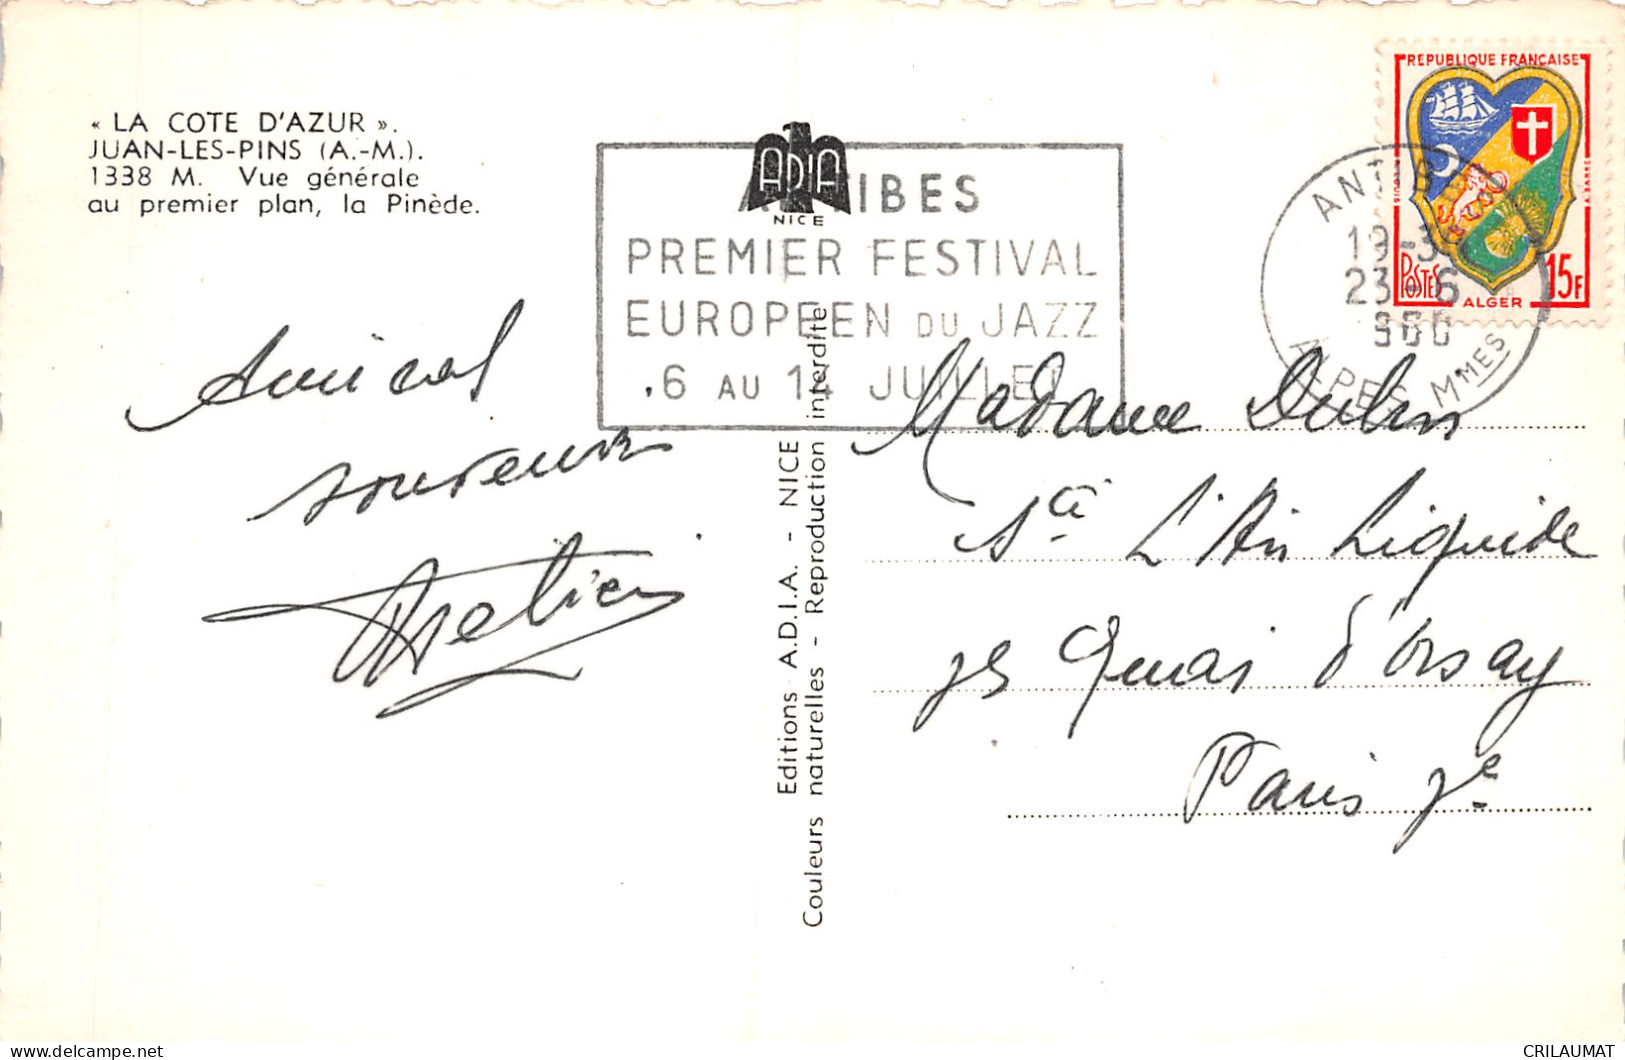 « LA COTE D'AZUR ».
JUAN-LES-PINS (A.-M.).
1338 M. Vue générale
au premier plan, la Pinède.
ADIA
NICE
ANTIBES
PREMIER FESTIVAL
EUROPEEN DU JAZZ
6 AU 14 JUILLET
ANTIBES
19-3
23-6
960
ALPES MMES
REPUBLIQUE FRANÇAISE
POSTES
ALGER
15F
Amical
souvenir
Editions A.D.I.A. - NICE
Couleurs naturelles - Reproduction interdite
Madame
Sté L'Air Liquide
75 Quai d'Orsay
Paris 7e
CRILAUMAT